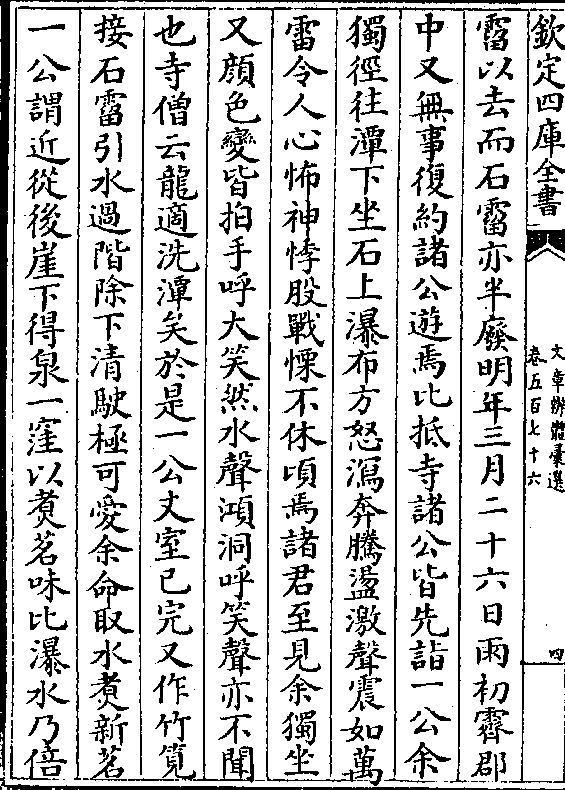 欽定四庫全書
文章辨體彙選
卷五百七十六
四
霤以去而石霤亦半廢明年三月二十六日雨初霽郡
中又無事復約諸公遊焉比抵寺諸公皆先詣一公余
獨徑往潭下坐石上瀑布方怒瀉奔騰盪激聲震如萬
雷令人心怖神悸股戰慄不休頃焉諸君至見余獨坐
又顔色變皆拍手呼大笑然水聲澒洞呼笑聲亦不聞
也寺僧云龍適洗潭矣於是一公丈室已完又作竹筧
接石霤引水過階除下清駛極可愛余命取水煑新茗
一公謂近從後崖下得泉一窪以煑茗味比瀑水乃倍